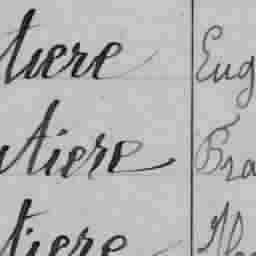 tiere Eug
tiere Bra
tiere